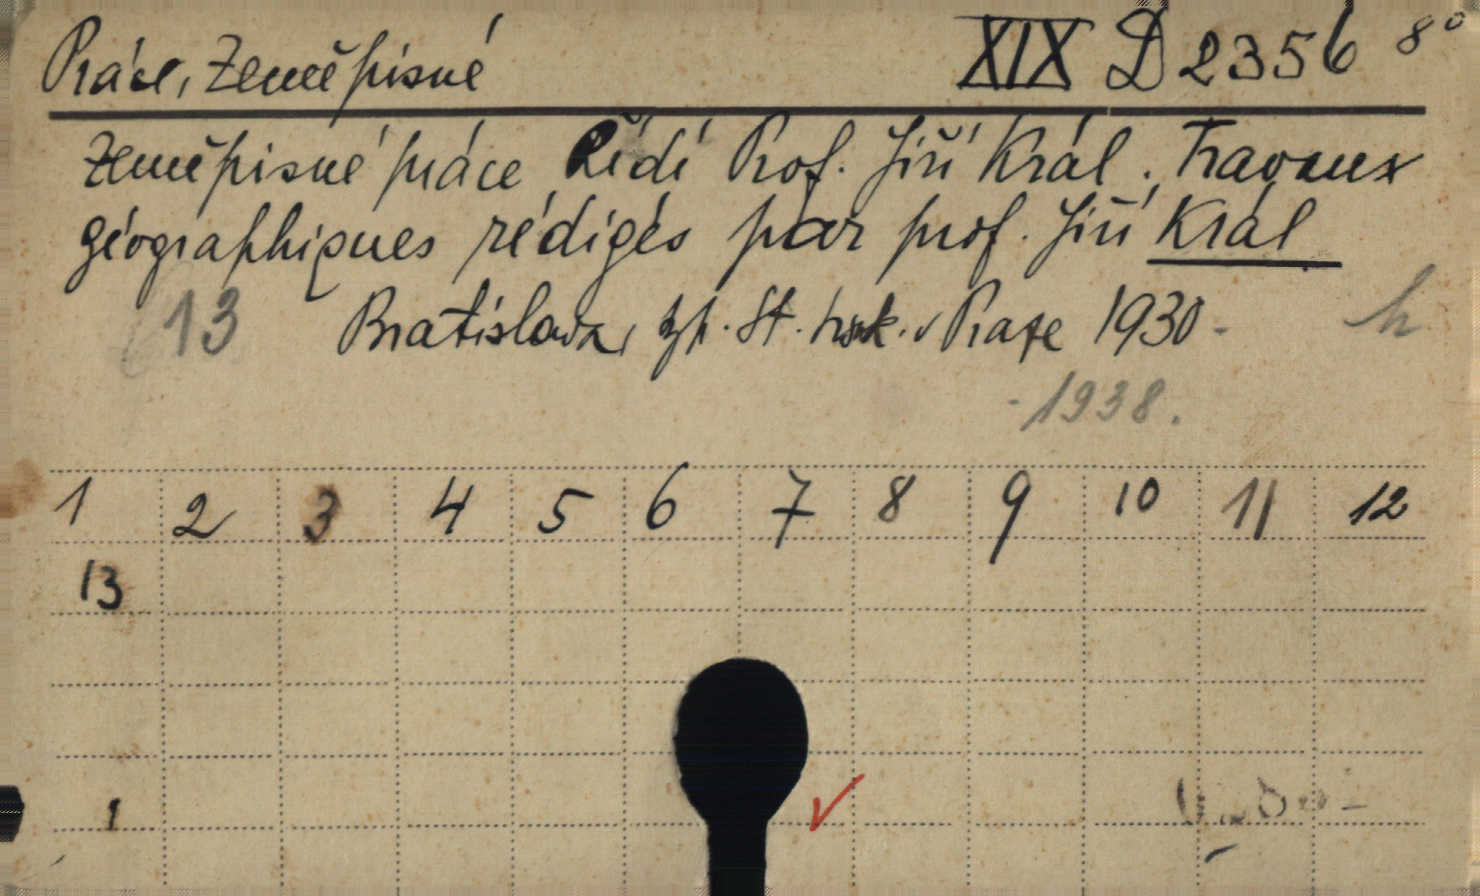 Práce, Zeměpisné XIX D 2356 8°
Zeměpisné práce Řídí Prof. Jiří Král. Travaux
géographiques rédigés par prof. Jiří Král
13 Bratislava, St. v Praze 1930- h
-1938.
1 2 3 4 5 6 7 8 9 10 11 12
13
1